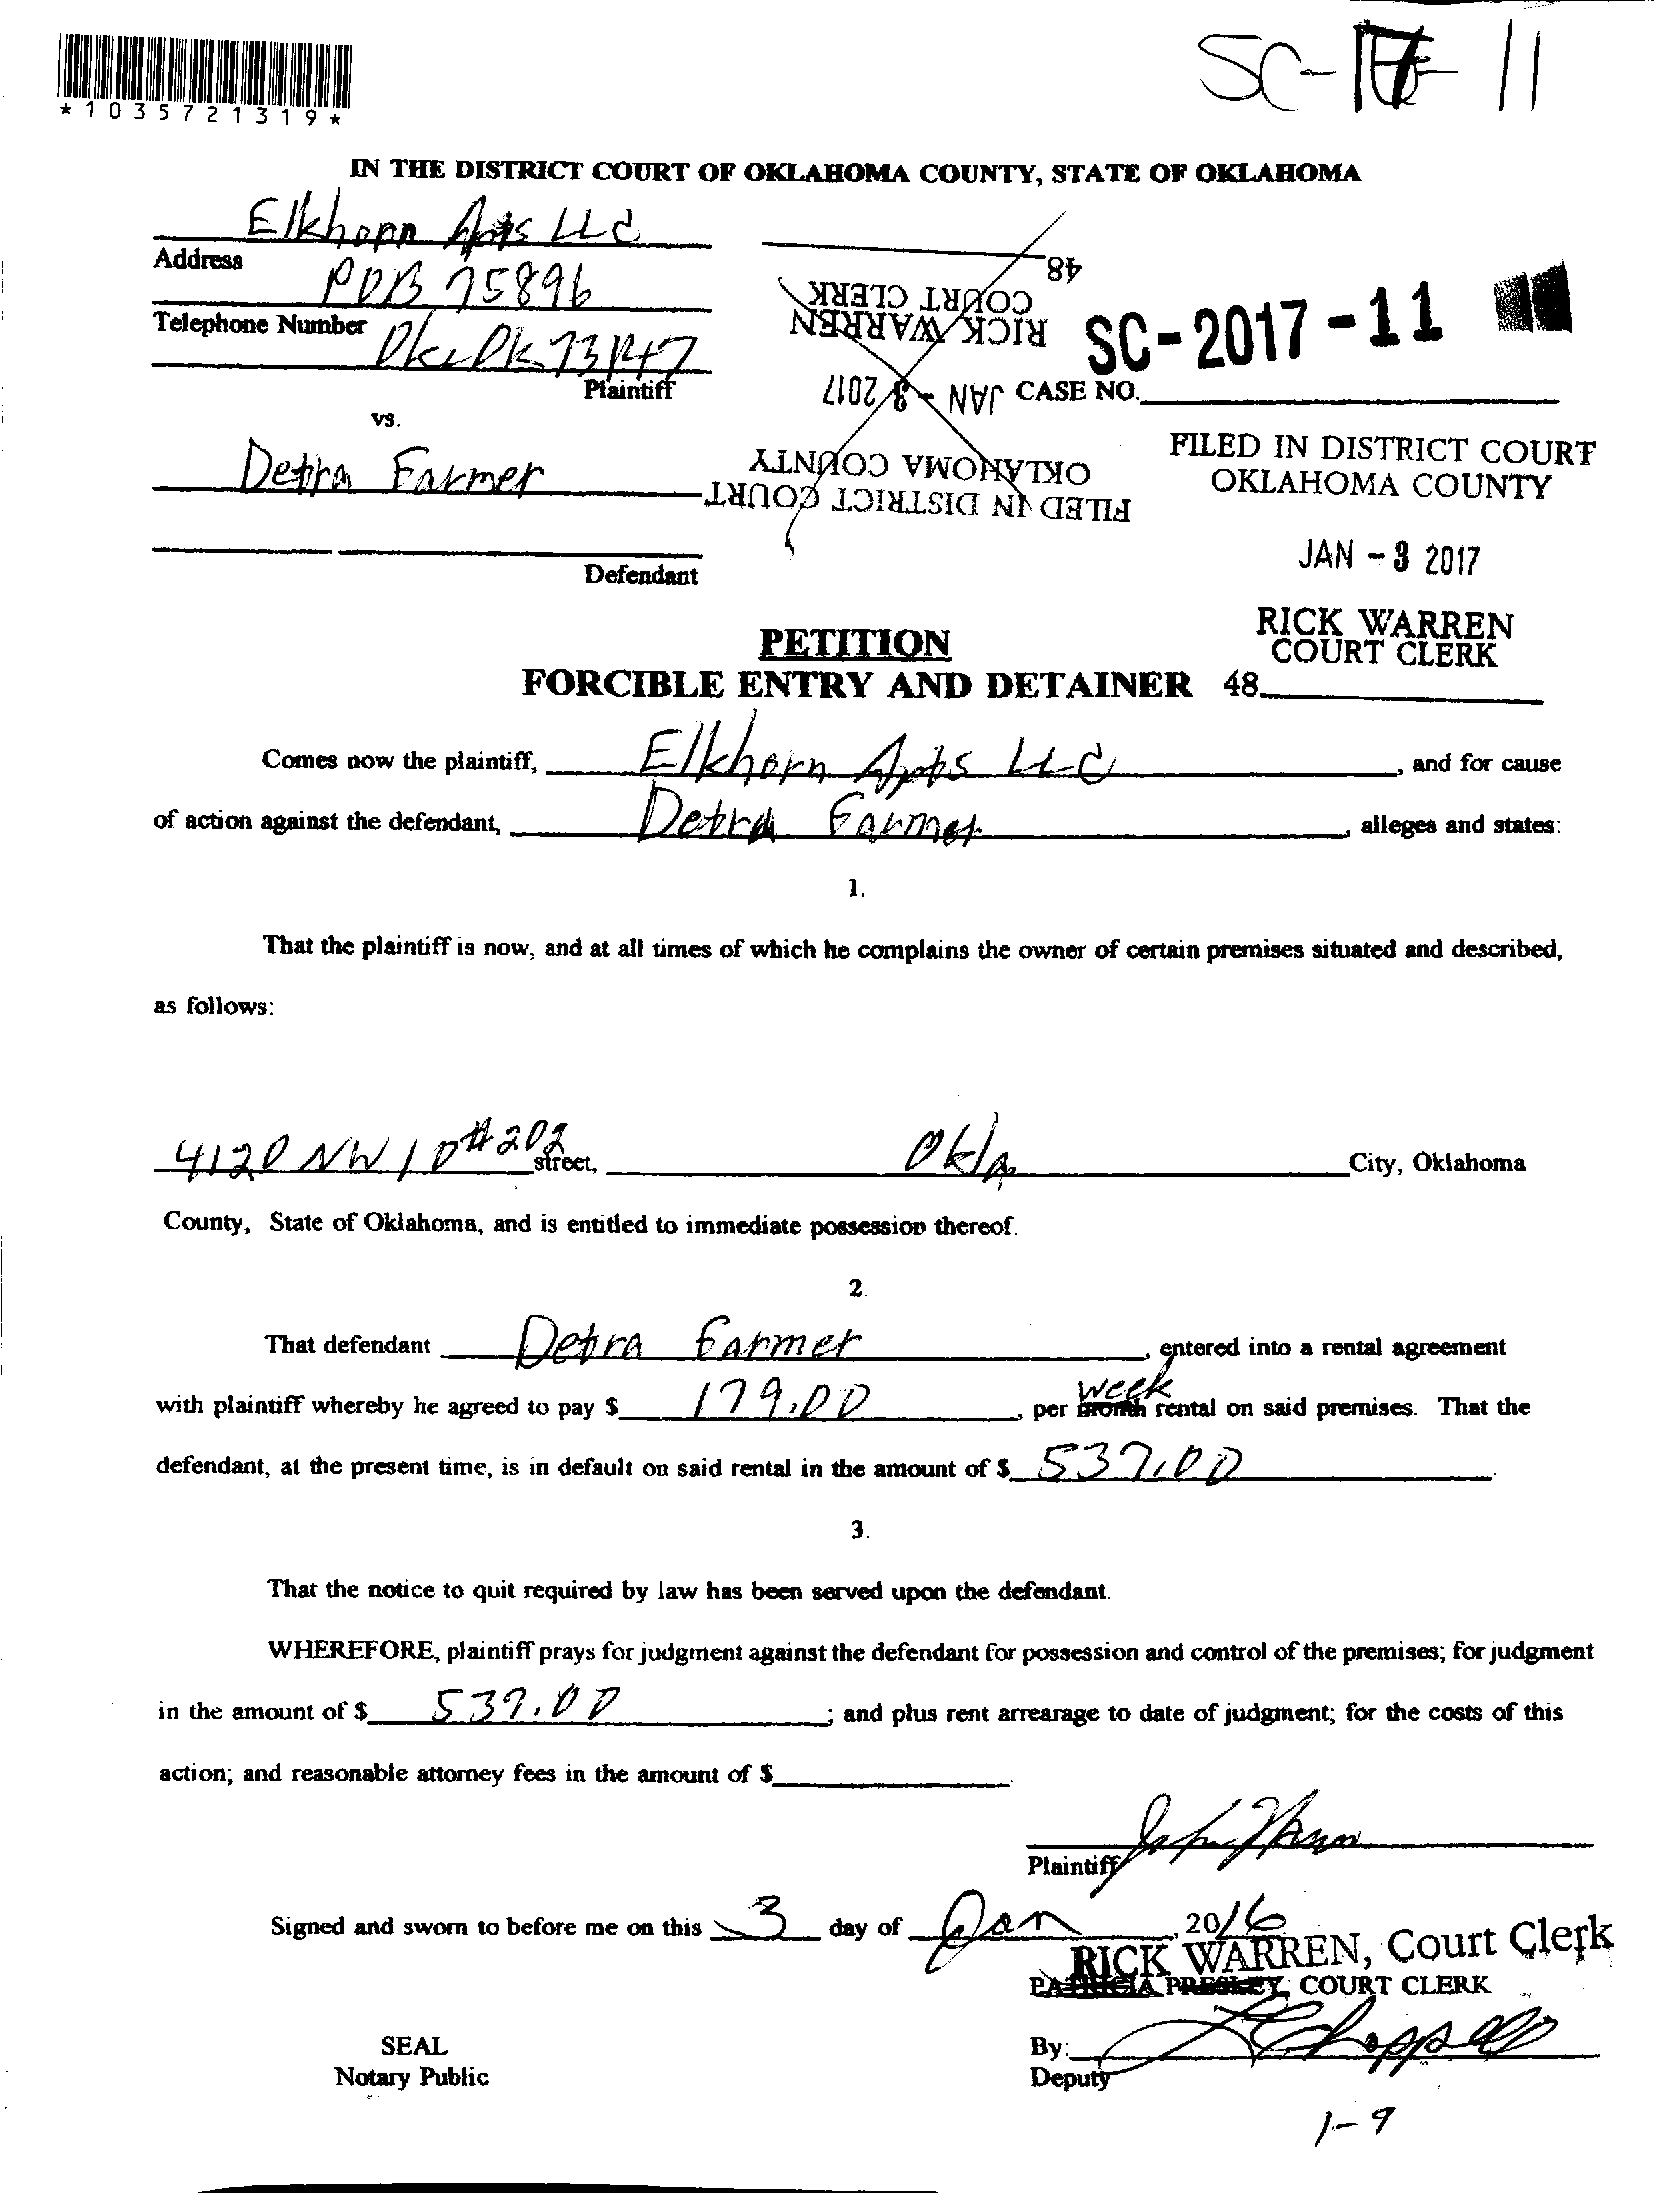 SC-17-11
*1035721319*
IN THE DISTRICT COURT OF OKLAHOMA COUNTY, STATE OF OKLAHOMA
Elkhorn Apts LLC
Address
POB 75896
Telephone Number
Okc Ok 73147
Plaintiff
vs.
Detra Farmer
Defendant
48
COURT CLERK
RICK WARREN
JAN - 3 2017
OKLAHOMA COUNTY
FILED IN DISTRICT COURT
SC-2017-11
CASE NO.
FILED IN DISTRICT COURT
OKLAHOMA COUNTY
JAN - 3 2017
RICK WARREN
COURT CLERK
48
PETITION
FORCIBLE ENTRY AND DETAINER
Comes now the plaintiff, Elkhorn Apts LLC, and for cause
of action against the defendant, Detra Farmer, alleges and states:
1.
That the plaintiff is now, and at all times of which he complains the owner of certain premises situated and described,
as follows:
4120 NW 10 #202 street, Okla City, Oklahoma
County, State of Oklahoma, and is entitled to immediate possession thereof.
2.
That defendant Detra Farmer, entered into a rental agreement
with plaintiff whereby he agreed to pay $ 179.00, per month week rental on said premises. That the
defendant, at the present time, is in default on said rental in the amount of $ 537.00
3.
That the notice to quit required by law has been served upon the defendant.
WHEREFORE, plaintiff prays for judgment against the defendant for possession and control of the premises; for judgment
in the amount of $ 537.00; and plus rent arrearage to date of judgment; for the costs of this
action; and reasonable attorney fees in the amount of $
Plaintiff
Signed and sworn to before me on this 3 day of Jan, 2016
RICK WARREN, Court Clerk
PATRICIA PRESLEY, COURT CLERK
SEAL
Notary Public
By:
Deputy
1-9